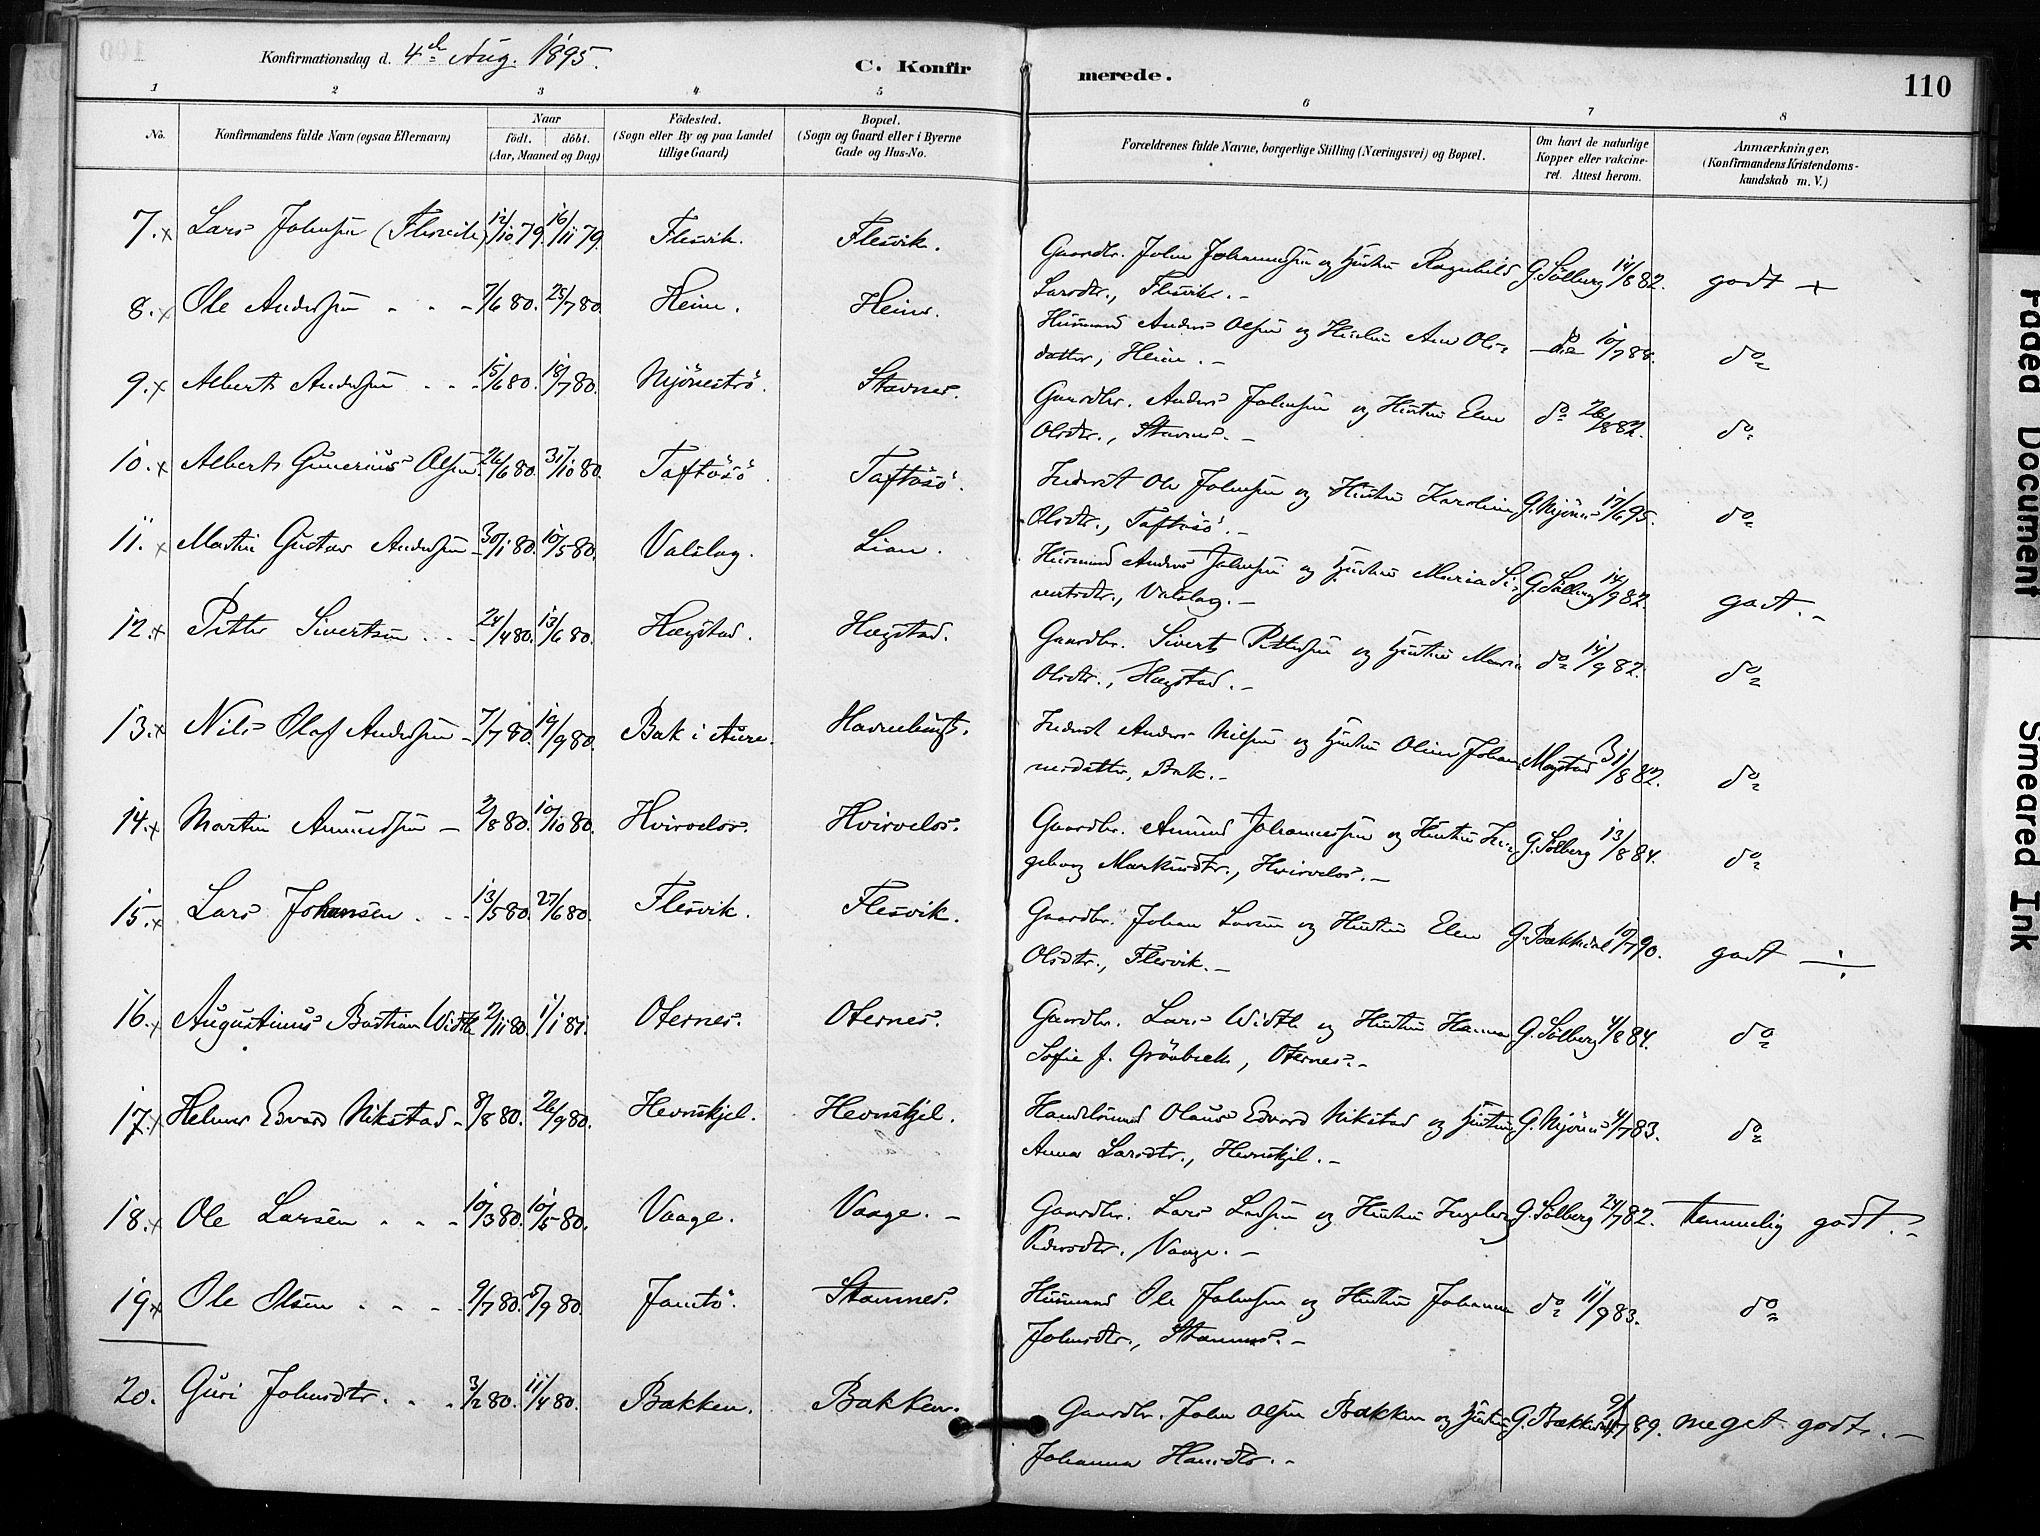 Konfirmationsdag d. 4de Aug. 1895.
C. Konfirmerede.
110
1 2 3 4 5 6 7 8
No.
Konfirmandens fulde Navn (ogsaa Efternavn)
Naar
födt. döbt.
(Aar, Maaned og Dag)
Födested.
(Sogn eller By og paa Landet
tillige Gaard)
Bopæl.
(Sogn og Gaard eller i Byerne
Gade og Hus-No.
Forældrenes fulde Navne, borgerlige Stilling (Næringsvei) og Bopæl.
Om havt de naturlige
Kopper eller vakcine-
ret. Attest herom.
Anmærkninger.
(Konfirmandens Kristendoms-
kundskab m. V.)
7. x Lars Johnsen (Flesvik) 12/10 79. 16/11 79. Flesvik. Flesvik. Gaardbr. John Johannessen og Hustru Ragnhild G. Sölberg 14/8 82. godt +
Larsdtr., Flesvik. -
8. x Ole Anderssen - - - 7/6 80. 25/7 80. Heim. Heim. Husmand Anders Olsen og Hustru Ane Ols- do 10/7 88. do
datter, Heim. -
9. x Albert Anderssen - - - 15/6 80. 18/7 80. Mjöneströ. Stavnes. Gaardbr. Anders Johnsen og Hustru Elen do 26/8 82. do
Olsdtr., Stavnes. -
10. x Albert Gunerius Olsen 26/6 80. 31/10 80. Taftösö. Taftösö. Inderst Ole Johnsen og Hustru Karoline G. Mjönes 17/6 95. do
Olsdtr., Taftösö. -
11. x Martin Gustav Anderssen 30/1 80. 10/5 80. Valslag. Lian. Husmand Anders Johnsen og Hustru Maria Si- G. Sölberg 14/9 82. godt. -
vertsdtr., Valslag. -
12. x Petter Sivertsen - - - 24/4 80. 13/6 80. Hægstad. Hægstad. Gaardbr. Sivert Petterssen og Hustru Maria do 14/9 82. do
Olsdtr., Hægstad. -
13. x Nils Olaf Anderssen - 7/7 80. 19/9 80. Bak i Aure. Inderst Anders Nilsen og Hustru Oline Johan- Magstad 31/8 82. do
nesdatter, Bak. -
14. x Martin Amundsen - 2/8 80. 10/10 80. Hvirvelos. Hvirvelos. Gaardbr. Amund Johannessen og Hustru In- G. Sölberg 13/8 84. do
geborg Markusdtr., Hvirvelos. -
15. x Lars Johansen - - 13/5 80. 27/6 80. Flesvik. Flesvik. Gaardbr. Johan Larsen og Hustru Elen G. Bækkedal 10/7 90. godt ÷
Olsdtr., Flesvik. -
16. x Augustinus Bastian Width 2/11 80. 1/1 81. Oternes. Oternes. Gaardbr. Lars Width og Hustru Hanna G. Sölberg 4/8 84. do
Sofie f. Grönbech, Oternes. -
17. x Helmer Edvard Nikstad - 8/8 80. 26/9 80. Hevnskjel. Hevnskjel. Handelsmand Olaus Edvard Nikstad og Hustru G. Mjönes 4/7 83. do
Anna Larsdtr., Hevnskjel. -
18. x Ole Larsen - - - 10/3 80. 10/5 80. Vaage. Vaage. - Gaardbr. Lars Larsen og Hustru Ingeborg G. Sölberg 24/7 82. temmelig godt. -
Pedersdtr. Vaage. -
19. x Ole Olsen - - - 9/7 80. 5/9 80. Jamtö. Stamnes. Husmand Ole Johnsen og Hustru Johanna do 11/9 83. do
Johnsdtr., Stamnes. -
20. Guri Johnsdtr. - - - 3/2 80. 11/4 80. Bakken. Bakken. Gaardbr. John Olsen Bakken og Hustru G. Bækkedal 9/7 89. meget godt. -
Johanna Hansdtr. -
Faded Document
Smeared Ink